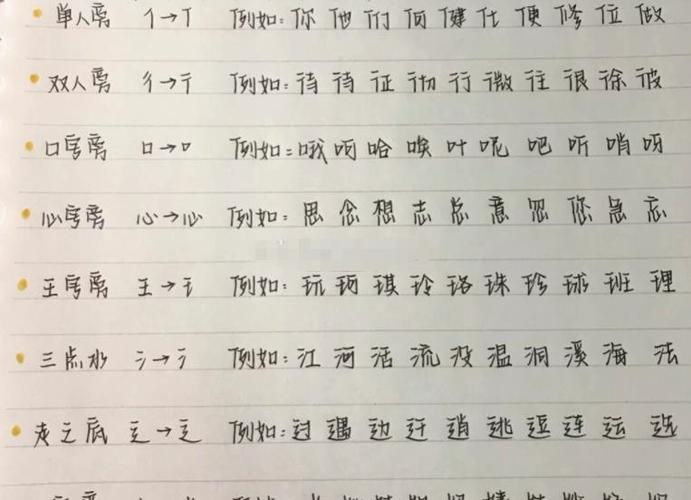 单人旁 亻→亻 例如:你 他 们 何 健 仕 便 修 位 做
双人旁 彳→彳 例如:待 待 征 彻 行 微 往 很 徐 彼
口字旁 口→口 例如:哦 呵 哈 唉 叶 呢 吧 听 哨 呀
心字旁 心→心 例如:思 念 想 志 总 意 忽 您 急 忘
王字旁 王→王 例如:玩 珂 琪 玲 珞 珠 珍 球 班 理
三点水 氵→氵 例如:江 河 活 流 没 温 洞 溪 海 法
走之底 辶→辶 例如:过 遇 边 迁 逍 逃 逗 连 运 选